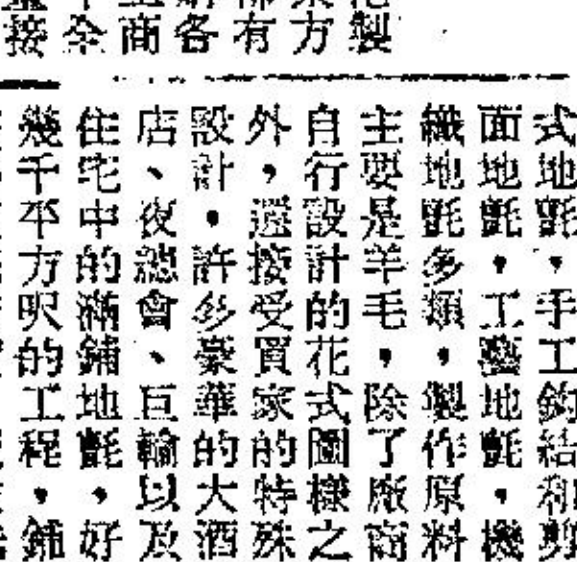 製
方
有
各
商
全
接
式地氈，手工鈎結和剪
面地氈，工藝地氈，機
織地氈多類，製作原料
主要是羊毛，除了廠商
自行設計的花式圖樣之
外，還接受買家的特殊
設計。許多豪華的大酒
店、夜總會、巨輪以及
住宅中的滿鋪地氈，好
幾千平方呎的工程，鋪